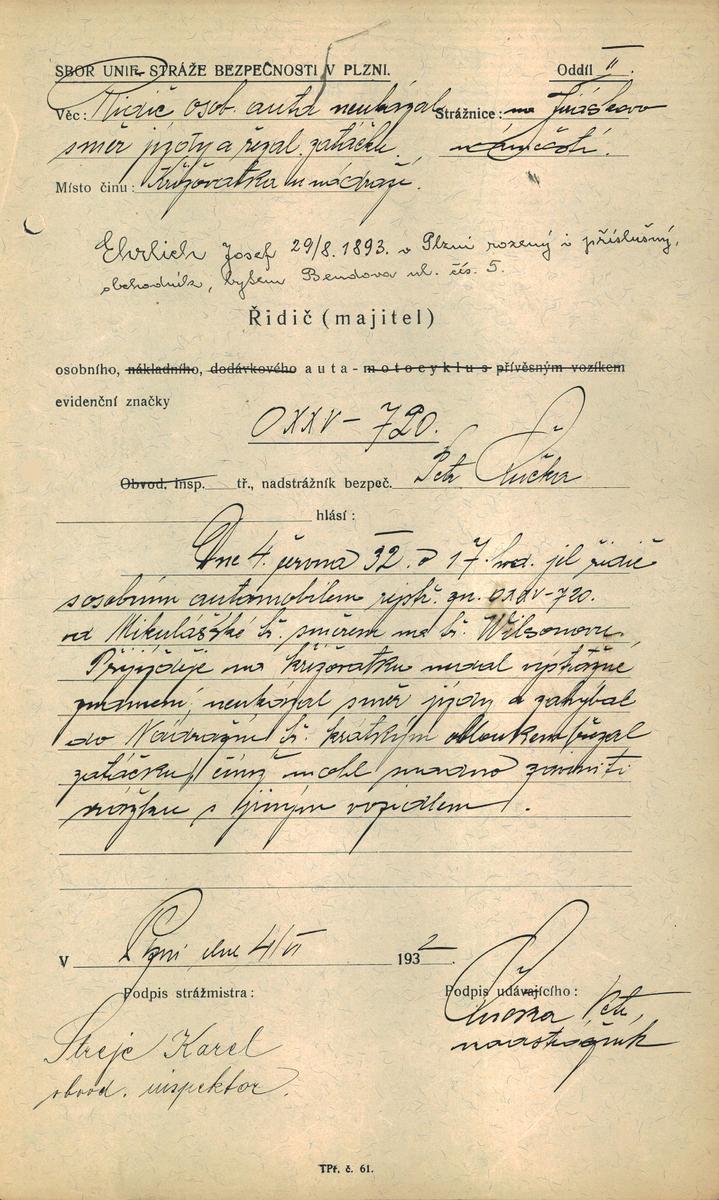 SBOR UNIF. STRÁŽE BEZPEČNOSTI V PLZNI. Oddíl II.
Věc: Řidič osob. auta neukázal Strážnice: na Jiráskovo
směr jízdy a řezal zatáčku. náměstí.
Místo činu: Křižovatka u nádraží.
Ehrlich Josef 29/8. 1893. v Plzni rozený i příslušný,
obchodník, bytem Bendova ul. čís. 5.
Řidič (majitel)
osobního, nákladního, dodávkového auta - motocyklus přívěsným vozíkem
evidenční značky
O XXV - 720.
Obvod. insp. tř., nadstrážník bezpeč. Petr
hlásí:
Dne 4. června 32. v 17. hod. jel řidič
s osobním automobilem rejstř. zn. O XXV-720.
od Mikulášské tř. směrem na tř. Wilsonovu.
Přijížděje na křižovatku nedal výstražné
znamení, neukázal směr jízdy a zahýbal
do Nádražní tř. krátkým obloukem (řezal
zatáčku) čímž mohl snadno zaviniti
srážku s jiným vozidlem.
V Plzni dne 4/VI 1932.
Podpis strážmistra: Podpis udávajícího:
Karel Petr,
obvod. inspektor. nadstrážník
TPř. č. 61.